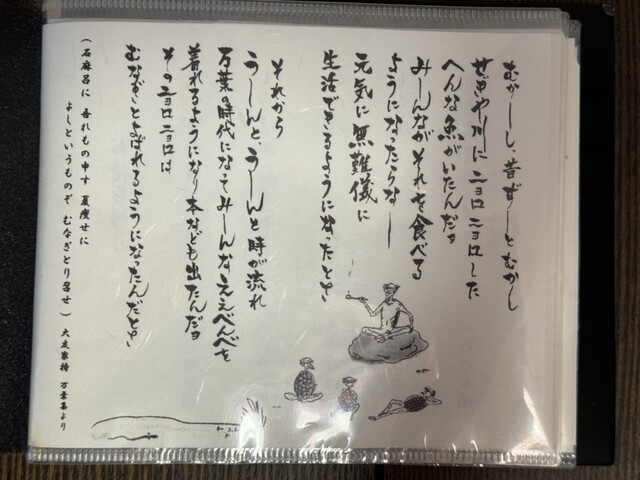 むかーしし、昔ずーとむかし
せぎや川にニョロニョロした
へんな魚がいたんだヨ
みーんながそれを食べる
ようになったらなー
元気に無難儀に
生活できるようになったとさ
それから
うーんと、うーんと時が流れ
万葉の時代になってみーんなええべべを
着れるようになり本なども出たんだヨ
そのニョロニョロは
むなぎとよばれるようになったんだとさ
(石麻呂に 吾れもの申す 夏痩せに
よしというものぞ むなぎとり召せ)
大友家持 万葉集より